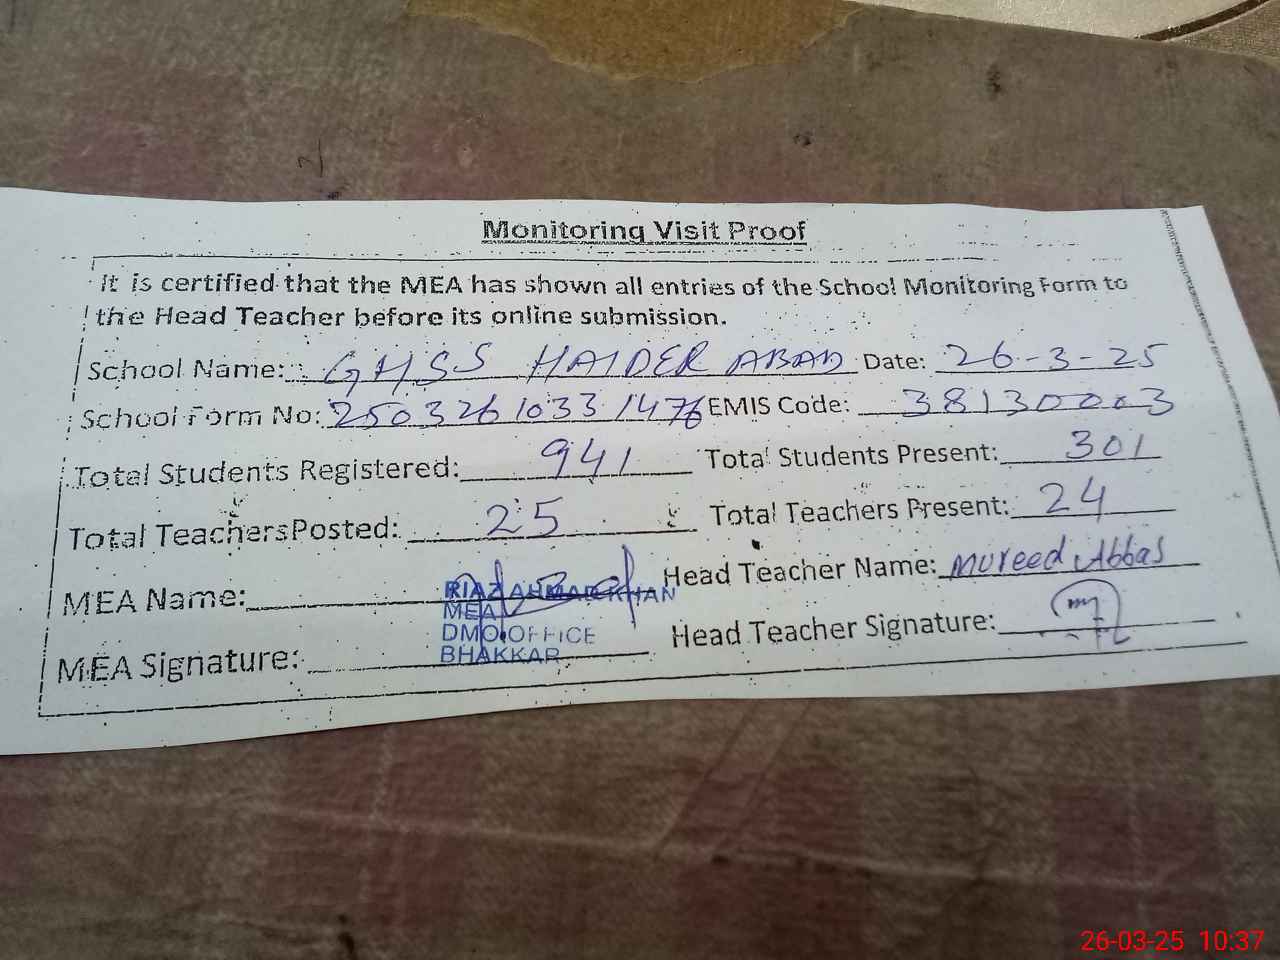 Monitoring Visit Proof
It is certified that the MEA has shown all entries of the School Monitoring Form to
the Head Teacher before its online submission.
School Name: GHSS HAIDER ABAD Date: 26-3-25
School Form No: 25032610331476 EMIS Code: 38130003
Total Students Registered: 941 Total Students Present: 301
Total Teachers Posted: 25 Total Teachers Present: 24
MEA Name: RIAZ AHMAD KHAN Head Teacher Name: Mureed Abbas
MEA
DMO OFFICE
BHAKKAR
MEA Signature: Head Teacher Signature:
26-03-25 10:37